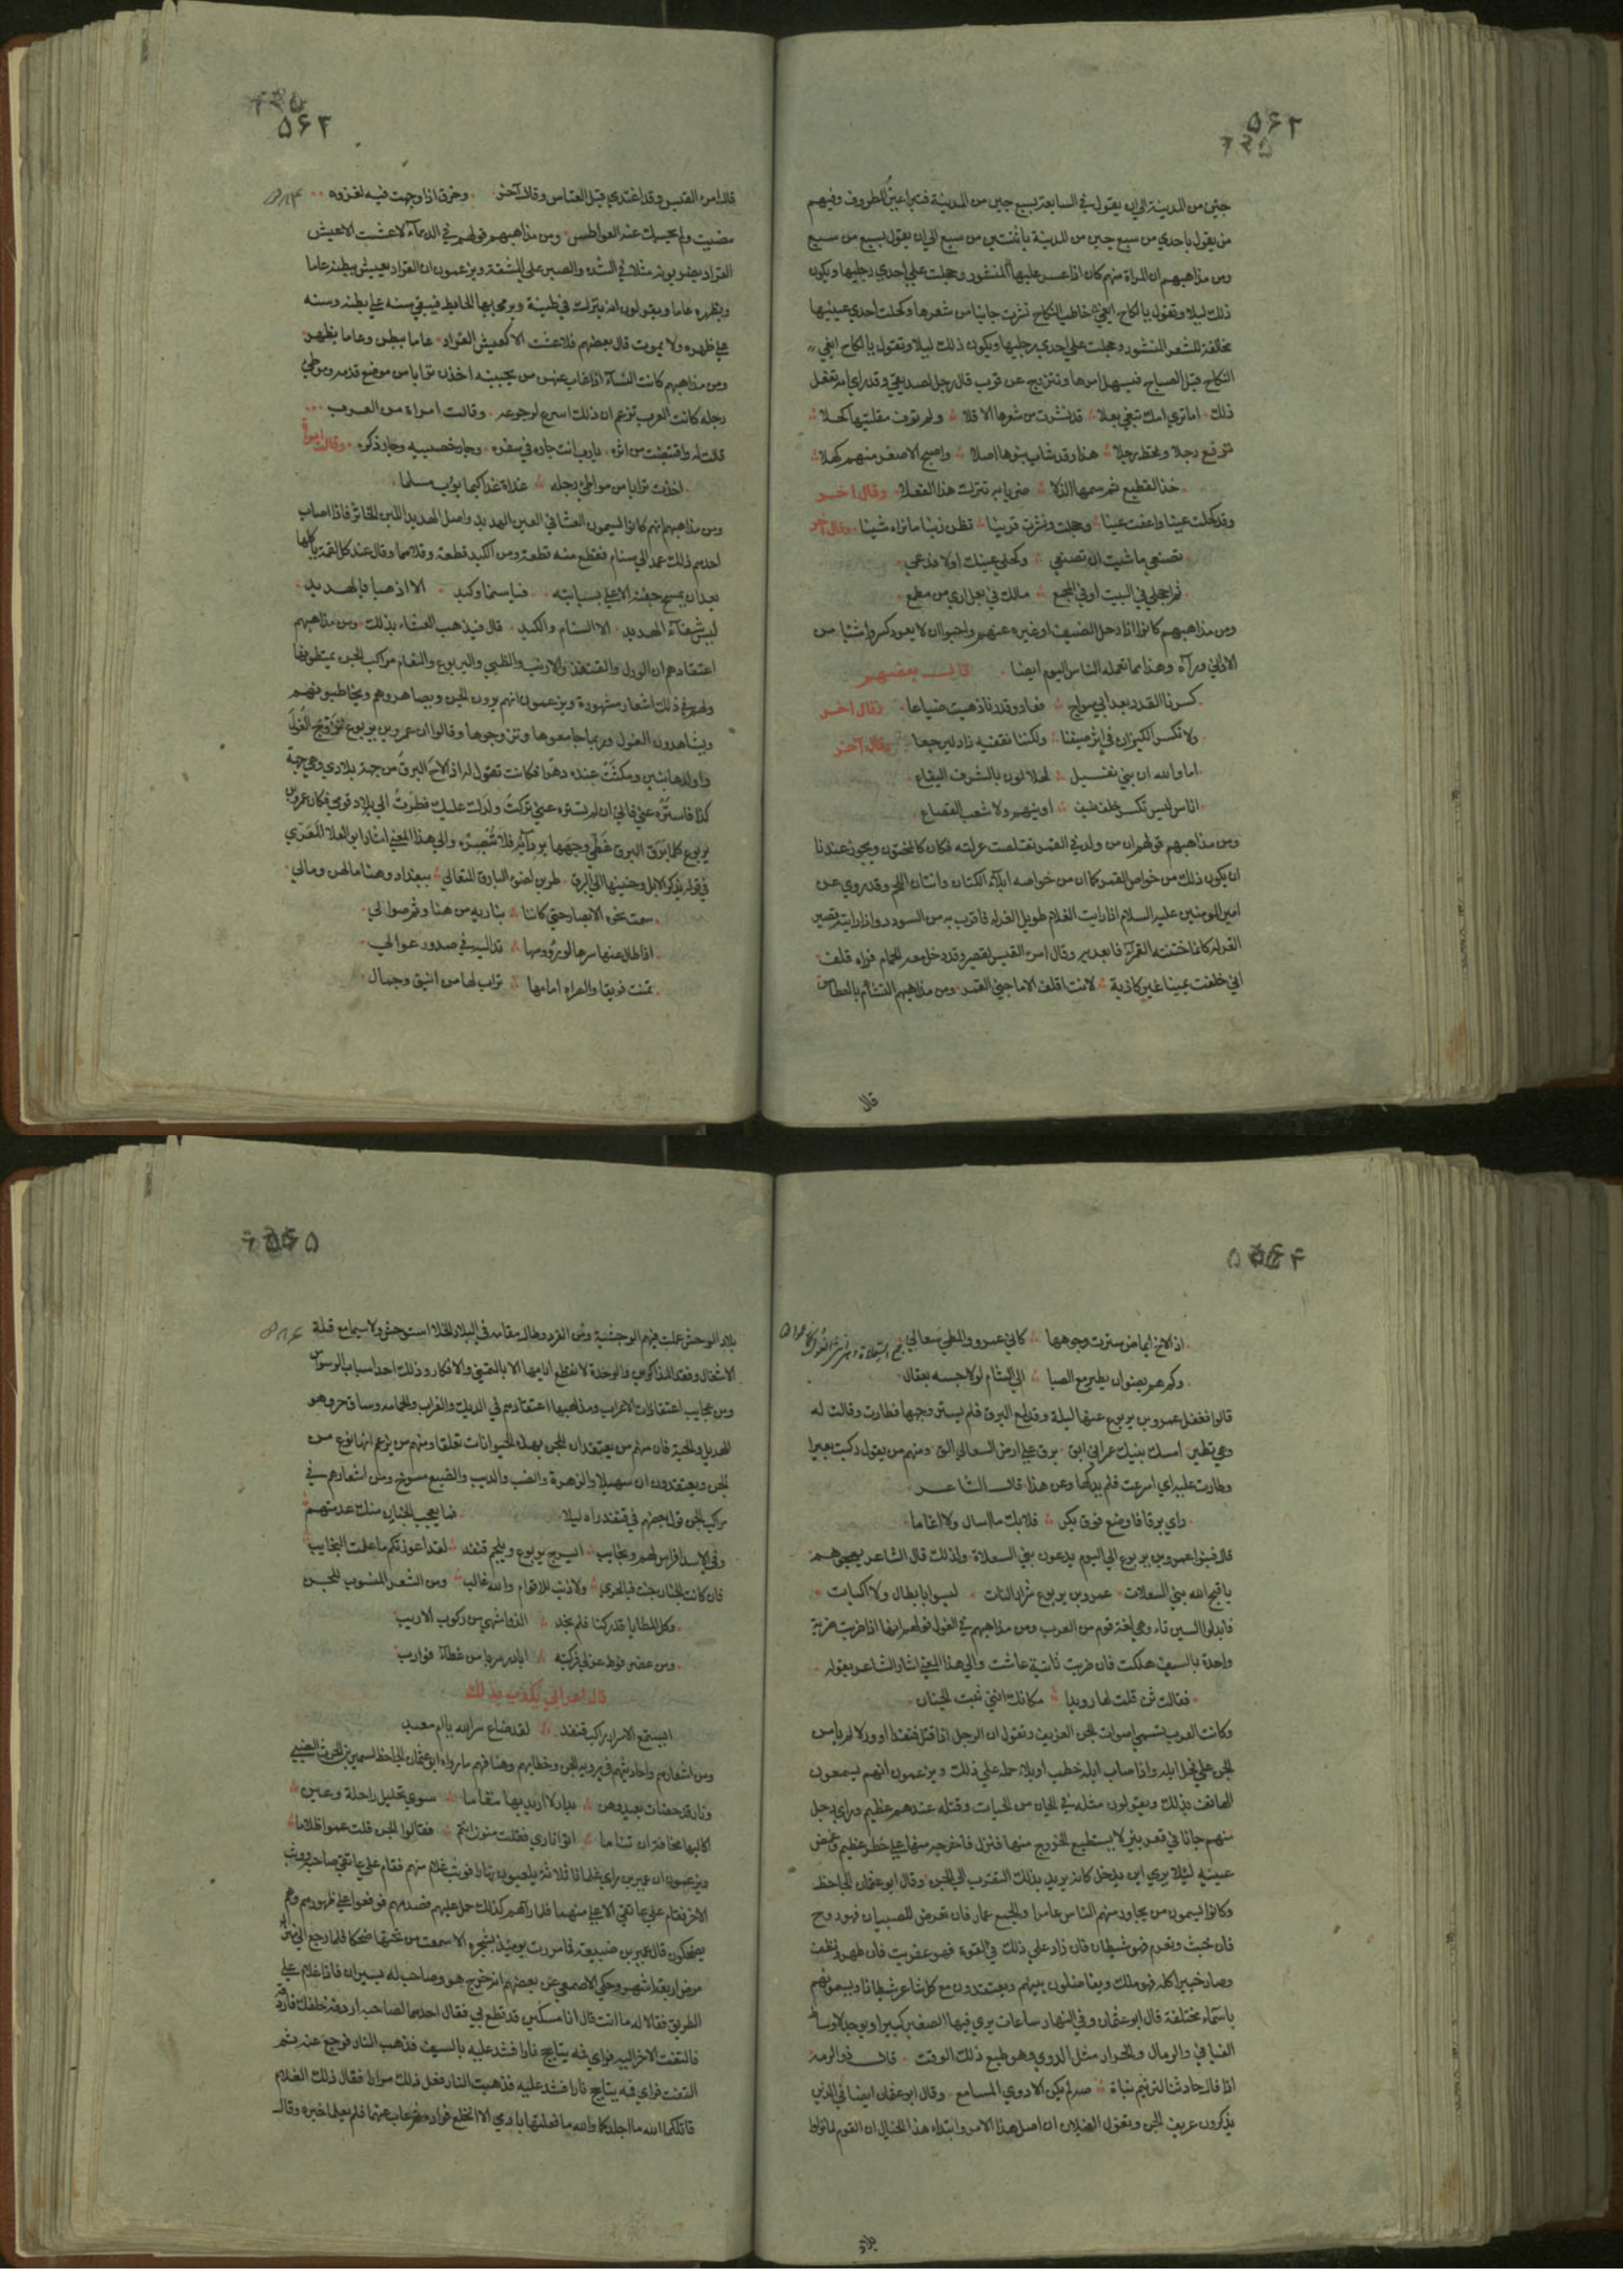 ۵۶۲
جبن من المدينة الى ان يقول في السابعة بسبع جبن من المدينة فتبرا عين المطروف وفيهم
من يقول باحدي من سبع جبن من المدينة باثنتين من سبع الى ان يقول بسبع من سبع
ومن مذاهبهم ان المراة منهم كان اذا عسر عليها المنشور وحجلت علي احدي رجليها ويكون
ذلك ليلا وتقول يا لكاح ابغي خاطب النكاح نشرت جانبا من شعرها وكحلت احدي عينيها
مخالفة للشعر المنشور وحجلت علي احدي رجليها ويكون ذلك ليلا وتقول يا لكاح ابغي
النكاح قبل الصباح فيسهل امرها وتتزوج عن قرب قال رجل لصديقه وقد راي امه تفعل
ذلك اما تري امك تبغي بعلا قد نشرت من شعرها الاقلا ولم توف مقلتيها كحلا
ترفع رجلا وتحط رجلا هذا وقد شاب بنوها اصلا واصبح الاصغر منهم كهلا
خذ القطيع ثم سمها الذلا ضربا به تترك هذا الفعلا وقال اخر
وقد كحلت عينا واعفت عينا وحجلت ونشرت قرينا تظن زينا ما تراه شينا وقال اخر
تصنعي ما شيت ان تصنعي وكحلي عينك اولا فدعي
ثم احجلي في البيت او في المجمع مالك في بعل اري من مطمع
ومن مذاهبهم كانوا اذا رحل الضيف او غيره عنهم واحبوا ان لا يعود كسروا شيئا من
الاواني وراه وهذا مما تعمله الناس اليوم ايضا قال بعضهم
كسرنا القدر بعد ابي سواح فعاد وقدرنا ذهبت ضياعا وقال اخر
ولا نكسر الكيزان في اثر ضيفنا ولكننا نقفيه زادا ليرجعا وقال آخر
اما والله ان بني نفيل لحلالون بالشرف اليفاع
اناس ليس تكسر خلف ضيف اوانيهم ولا شعب القصاع
ومن مذاهبهم قولهم ان من ولد في القمر تقلصت غرلته فكان كالمختون ويجوز عندنا
ان يكون ذلك من خواص القمر كما ان من خواصه ابلاء الكتان وانتان اللحم وقد روي عن
امير المومنين عليه السلام اذا رايت الغلام طويل الغرله فاقرب به من السودد واذا رايته قصير
الغرله كانما ختنه القمر فابعد به وقال امرء القيس لقيصر وقد دخل معه الحمام فراه اقلف
اني حلفت يمينا غير كاذبة لانت اقلف الا ما جني القمر ومن مذاهبهم التشاؤم بالعطاس
قال
۵۶۳
قال امرء القيس وقد اغتدي قبل العطاس وقال آخر وخرق اذا وجهت فيه لغزوه
مضيت ولم يحبسك عنه العواطس ومن مذاهبهم قولهم في الدعاء لا عشت الا عيش
القراد يضربونه مثلا في الشدة والصبر علي المشقة ويزعمون ان القراد يعيش ببطنه عاما
وبظهره عاما ويقولون انه يترك في طينة ويرمي بها الحايط فيبقي سنه علي بطنه وسنه
علي ظهره ولا يموت قال بعضهم فلا عشت الا كعيش القراد عاما ببطن وعاما بظهر
ومن مذاهبهم كانت النساء اذا غاب عنهن من يحببنه اخذن ترابا من موضع قدمه وموطي
رجله كانت العرب تزعم ان ذلك اسرع لرجوعه وقالت امراة من العرب
قالت له واقتبضت من اثره يا رب انت جاره في سفره وجار خصييه وجار ذكره وقالت امراة
اخذت ترابا من مواطي رجله غداة غدا كيما يؤب مسلما
ومن مذاهبهم انهم كانوا يسمون العشا في العين الهدبد واصل الهدبد اللبن الخاثر فاذا اصاب
احدهم ذلك عمد الي سنام فقطع منه قطعة ومن الكبد قطعة وقلاهما وقال عند كل لقمة ياكلها
بعد ان يمسح جفنه الاعلي بسبابته فيا سناما وكبد الا اذهبا بالهدبد
ليس شفاء الهدبد الا السنام والكبد قال فيذهب العشاء بذلك ومن مذاهبهم
اعتقادهم ان الورل والقنفذ والارنب والظبي واليربوع والنعام مراكب الجن يمتطونها
ولهم في ذلك اشعار مشهورة ويزعمون انهم يرون الجن ويصاهروهم ويخاطبونهم
ويشاهدون الغول وربما جامعوها وتزوجوها وقالوا ان عمرو بن يربوع تزوج الغول
واولدها بنين ومكثت عنده دهرا فكانت تقول له اذا لاح البرق من جهة بلادي وهي جهة
كذا فاستره عني فاني ان لم تستره عني تركت ولدك عليك وطرت الى بلاد قومي فكان عمرو بن
يربوع كلما برق البرق غطي وجهها بردائه فلا تبصره والي هذا المعني اشار ابو العلا المعري
في قوله يذكر الابل وحنينها الي البرق طربن لضوء البارق المتعالي ببغداد وهنا ما لهن ومالي
سمت نحوه الابصار حتي كانها بناريه من هنا وثم صوالي
اذا طال عنها سرها لو رؤوسها تمد اليه في صدور عوالي
تمنت قويقا والصراه امامها تراب لها من اينق وجمال
اذا لاح ايماض سترت وجوهها كاني عمرو والمطي سعالي
وكم هم نضوان يطير مع الصبا الي الشام لولا حبسه بعقال
قالوا فغفل عمرو بن يربوع عنها ليلة وقد لمع البرق فلم يستر وجهها فطارت وقالت له
وهي تطير امسك بنيك عمرو اني ابق برق علي ارض السعالي الق ومنهم من يقول ركبت بعيرا
وطارت عليه اي اسرعت فلم يدركها وعن هذا قال الشاعر
راي برقا فاوضع فوق بكر فلا بك ما اسال ولا اغاما
قال فبنوا عمرو بن يربوع الي اليوم يدعون بني السعلاة ولذلك قال الشاعر يهجوهم
يا قبح الله بني السعلات عمرو بن يربوع شرار النات ليسوا بابطال ولا اكيات
فابدلوا السين تاء وهي لغة قوم من العرب ومن مذاهبهم في الغول قولهم انها اذا ضربت ضربة
واحدة بالسيف هلكت فان ضربت ثانية عاشت والي هذا المعني اشار الشاعر بقوله
فقالت ثن قلت لها رويدا مكانك انني ثبت الجنان
وكانت العرب تسمي اصوات الجن العزيف وتقول ان الرجل اذا قتل قنفذا او ورلا لم يامن
الجن علي فحل ابله واذا اصاب ابله خطب او بلاء حمله علي ذلك ويزعمون انهم يسمعون
الهاتف بذلك ويقولون مثله في الجان من الحيات وقتله عندهم عظيم وراي رجل
منهم جانا في قعر بير لا يستطيع الخروج منها فنزل فاخرجه منها علي خطر عظيم وغمض
عينيه ليلا يري اين يدخل كانه يريد بذلك التقرب الي الجن وقال ابو عثمان الجاحظ
وكانوا يسمون من يجاور منهم الناس عامرا والجمع عمار فان تعرض للصبيان فهو روح
فان خبث وتعرم فهو شيطان فان زاد علي ذلك في القوة فهو عفريت فان طهر ونظف
وصار خيرا كله فهو ملك ويفاضلون بينهم ويعتقدون مع كل شاعر شيطانا ويسمونهم
باسماء مختلفة قال ابو عثمان وفي النهار ساعات يري فيها الصغير كبيرا ويوجد لاوساط
الفيافي والرمال والحرار مثل الدوي وهو طبع ذلك الوقت قال ذو الرمة
اذا قال حادينا لترنيم نباة صه لم يكن الا دوي المسامع وقال ابو عثمان ايضا في الذين
يذكرون عزيف الجن وتغول الغيلان ان اصل هذا الامر وابتداء هذا الخيال ان القوم لما نزلوا
بلاد
بلاد الوحش عملت فيهم الوحشية ومن انفرد وطال مقامه في البلاد الخلا استوحش ولا سيما مع قلة
الاشغال وفقد المذاكرين والوحدة لا تقطع ايامها الا بالتمني والافكار وذلك احد اسباب الوسواس
ومن عجايب اعتقادات الاعراب ومذاهبها اعتقادهم في الديك والغراب والحمامه وساق حر وهو
الهديل والحية فان منهم من يعتقد ان للجن بهذه الحيوانات تعلقا ومنهم من يزعم انها نوع من
الجن ويعتقدون ان سهيلا والزهرة والضب والذيب والضبع مسوخ ومن اشعارهم في
مراكب الجن قول بعضهم في قنفذ راه ليلا فما يعجب الجنان منك عدمتهم
وفي الاسد افراس لهم ونجايب ايسرج يربوع ويلجم قنفذ لقد اعوزتكم ما علمت النجايب
فان كانت الجنان جنت فبالحري ولا ذنب للاقوام والله غالب ومن الشعر المنسوب للجن
وكل المطايا قد ركبنا فلم نجد الذ واشهي من ركوب الارانب
ومن عضرفوط عن لي فركبته ابادر سربا من عظاء قوارب
قال اعرابي يكذب بذلك
ايستمع الاسرار راكب قنفذ لقد ضاع سر الله يا ام معبد
ومن اشعارهم واحاديثهم في روية الجن وخطابهم وهتافهم ما رواه ابو عثمان الجاحظ لسمير بن الحرث الضبي
ونار قد حضات بعيد وهن بدار لا اريد بها مقاما سوي تحليل راحلة وعين
اكاليها مخافة ان تناما اتوا ناري فقلت منون انتم فقالوا الجن قلت عموا ظلاما
ويزعمون ان عمير بن ضبيعة راي غلمانا ثلاثة يلعبون نهارا فوثب غلام منهم فقام علي عاتقي صاحبه ووثب
الاخر فقام علي عاتقي الاعلي منهما فلما راهم كذلك حمل عليهم فصدمهم فوقعوا علي ظهورهم وهم
يضحكون قال عمير بن ضبيعة فما مررت يومئذ بشجره الا سمعت من تحتها ضحكا فلما رجع الي منزله
مرض اربعة اشهر وحكي الاصمعي عن بعضهم انه خرج هو وصاحب له يسيران فاذا غلام علي
الطريق فقالا له ما انت قال انا مسكين قد قطع بي فقال احدهما لصاحبه اردفه خلفك فاردفه
فالتفت الاخر اليه فراي فمه يتاجج نارا فشد عليه بالسيف فذهبت النار فرجع عنه ثم
التفت فراي فمه يتاجج نارا فشد عليه فذهبت النار ففعل ذلك مرارا فقال ذلك الغلام
قاتلكما الله ما اجلدكما والله ما فعلتها بادمي الا انخلع فواده ثم غاب عنهما فلم يعلما خبره وقال